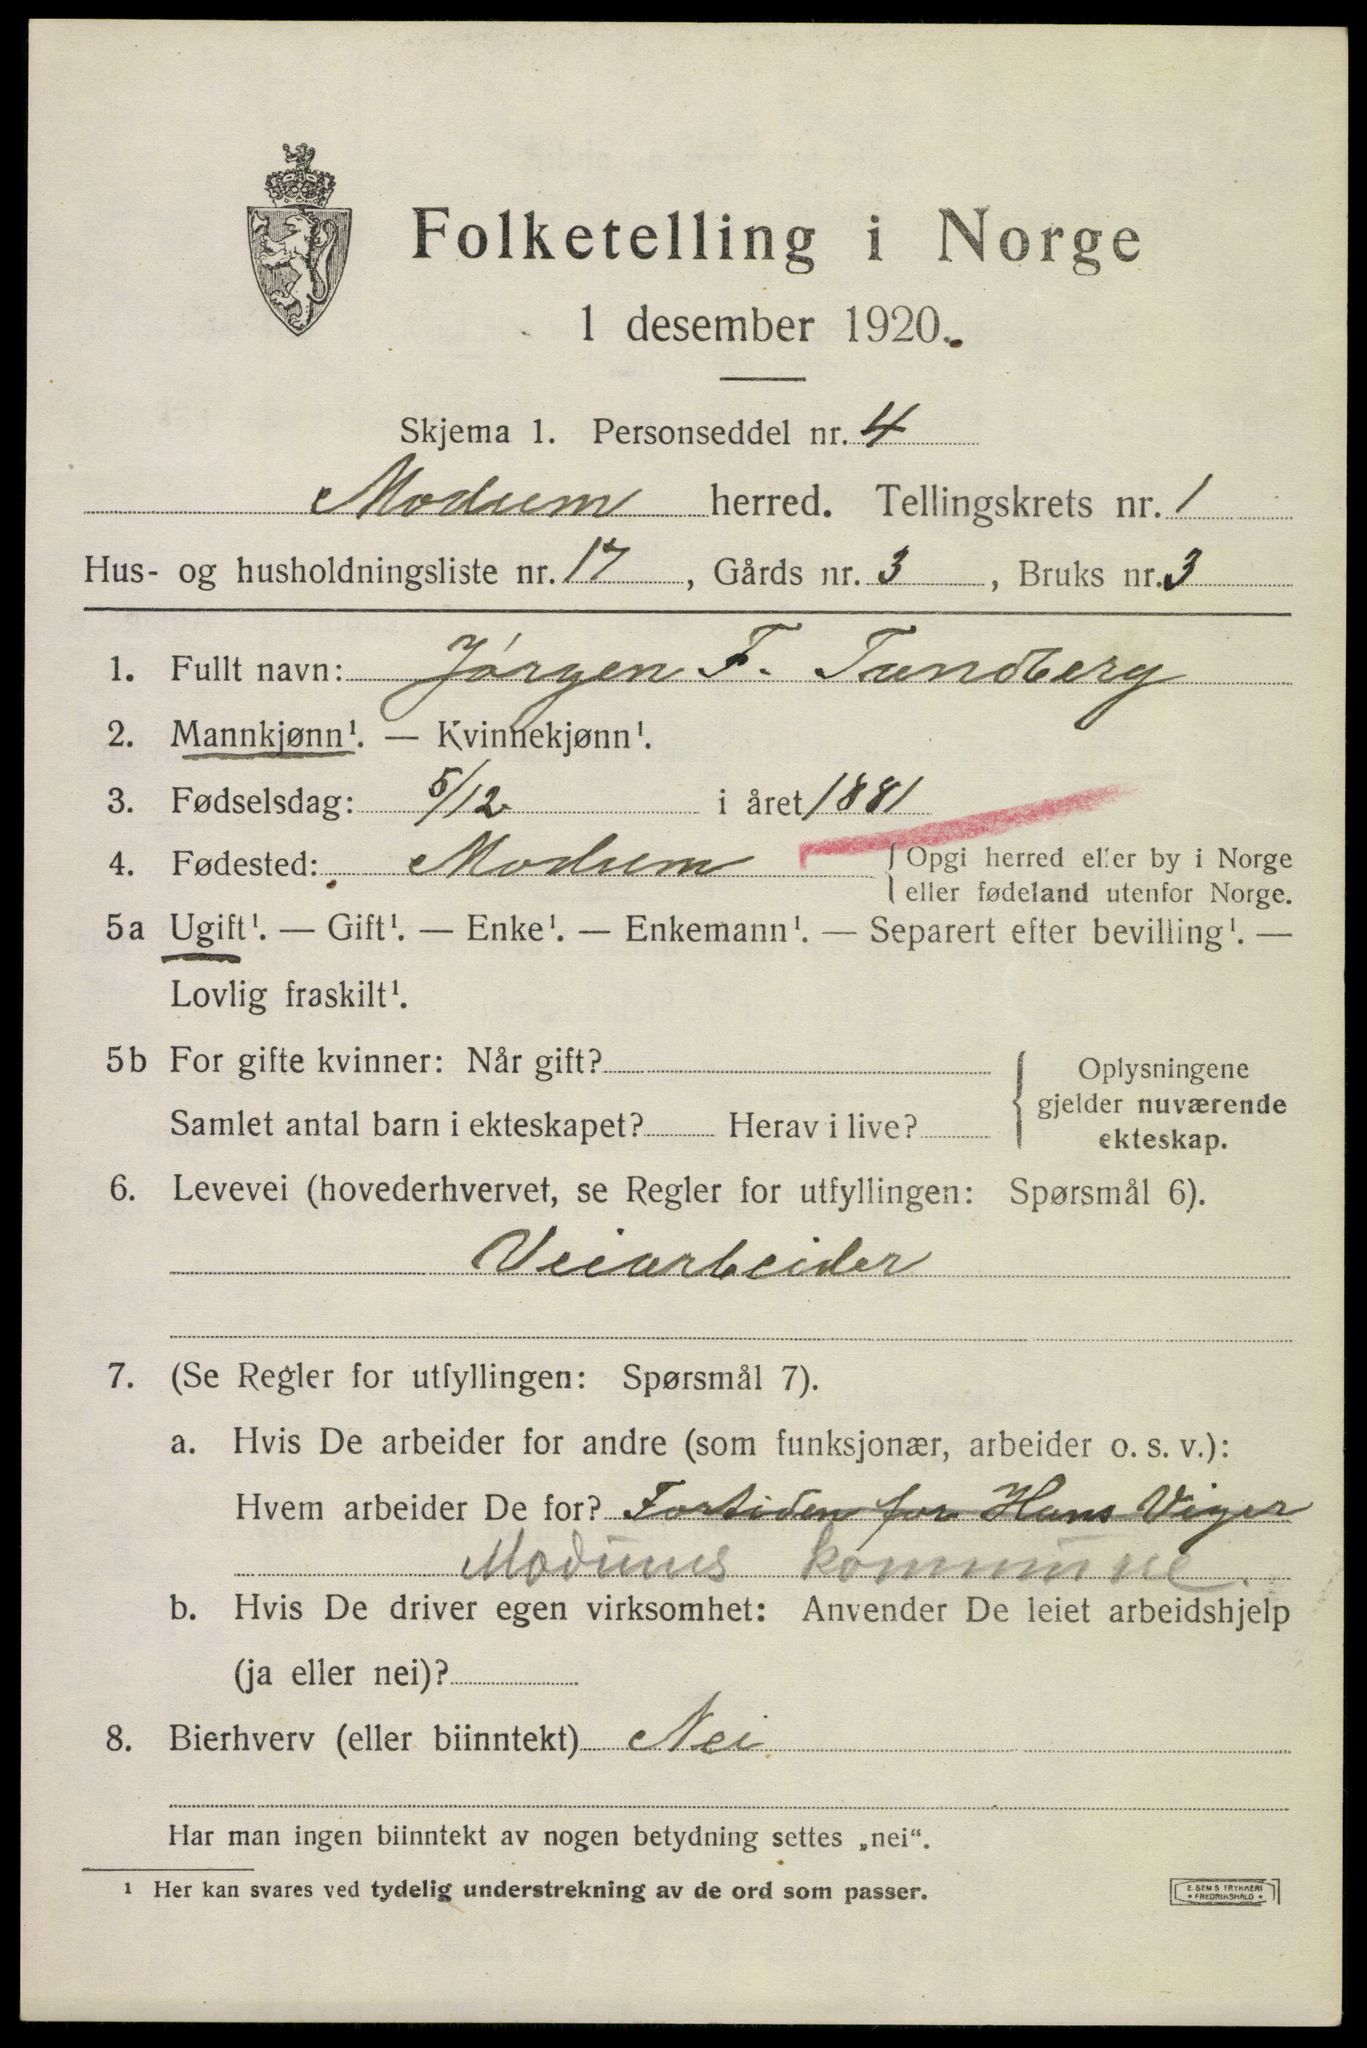 Folketelling i Norge
1 desember 1920.
Skjema 1. Personseddel nr. 4
Modum herred. Tellingskrets nr. 1
Hus- og husholdningsliste nr. 17, Gårds nr. 3, Bruks nr. 3
1. Fullt navn: Jørgen F. Tandberg
2. Mannkjønn¹. — Kvinnekjønn¹.
3. Fødselsdag: 5/12 i året 1881
4. Fødested: Modum { Opgi herred eller by i Norge
eller fødeland utenfor Norge.
5a Ugift¹. — Gift¹. — Enke¹. — Enkemann¹. — Separert efter bevilling¹. —
Lovlig fraskilt¹.
5b For gifte kvinner: Når gift? Oplysningene
gjelder nuværende
Samlet antal barn i ekteskapet? Herav i live? ekteskap.
6. Levevei (hovederhvervet, se Regler for utfyllingen: Spørsmål 6).
Veiarbeider
7. (Se Regler for utfyllingen: Spørsmål 7).
a. Hvis De arbeider for andre (som funksjonær, arbeider o. s. v.):
Hvem arbeider De for? Fortiden for Hans Viger
Modums kommune.
b. Hvis De driver egen virksomhet: Anvender De leiet arbeidshjelp
(ja eller nei)?
8. Bierhverv (eller biinntekt) Nei
Har man ingen biinntekt av nogen betydning settes „nei“.
¹ Her kan svares ved tydelig understrekning av de ord som passer.
E. SEMS TRYKKERI
• FREDRIKSHALD •